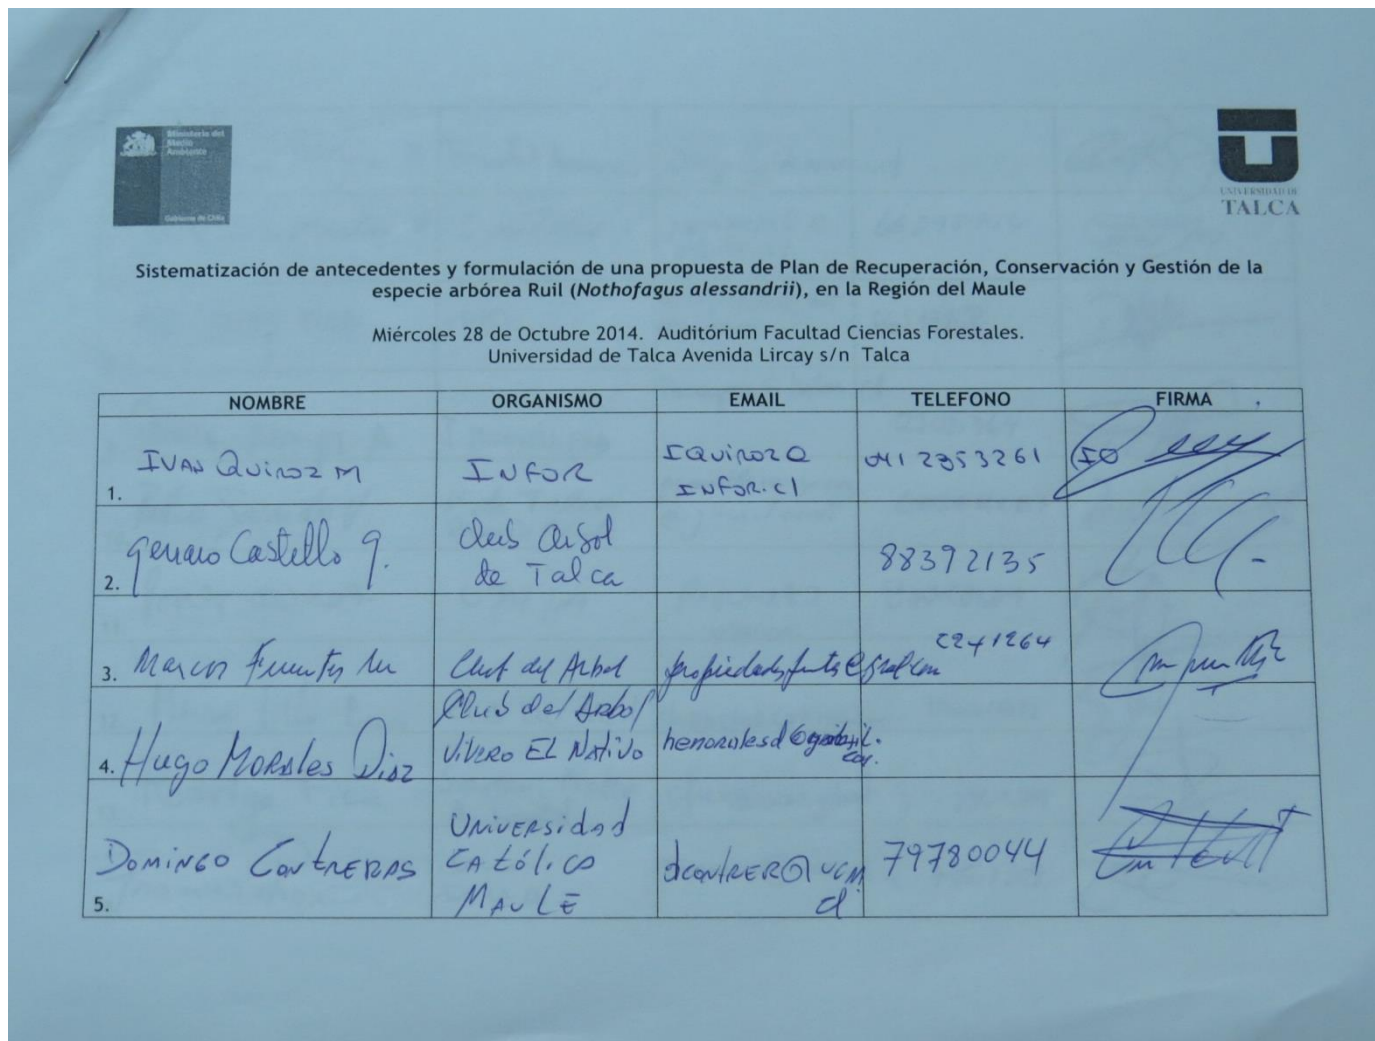 Ministerio del
Medio
Ambiente
Gobierno de Chile
UNIVERSIDAD DE
TALCA
Sistematización de antecedentes y formulación de una propuesta de Plan de Recuperación, Conservación y Gestión de la
especie arbórea Ruil (Nothofagus alessandrii), en la Región del Maule
Miércoles 28 de Octubre 2014. Auditórium Facultad Ciencias Forestales.
Universidad de Talca Avenida Lircay s/n Talca
NOMBRE ORGANISMO EMAIL TELEFONO FIRMA
1. IVAN QUIROZ M INFOR IQUIROZ@ 0412853261
INFOR.cl
2. Genaro Castillo G. Club Arbol 88392135
de Talca
3. Marcos Fuentes Club del Arbol 2241264
4. Hugo MORALES DIAZ Club del Arbol
VIVERO EL NATIVO
5. DOMINGO CONTRERAS UNIVERSIDAD dcontrer@ucm 79780044
CATÓLICA cl
MAULE